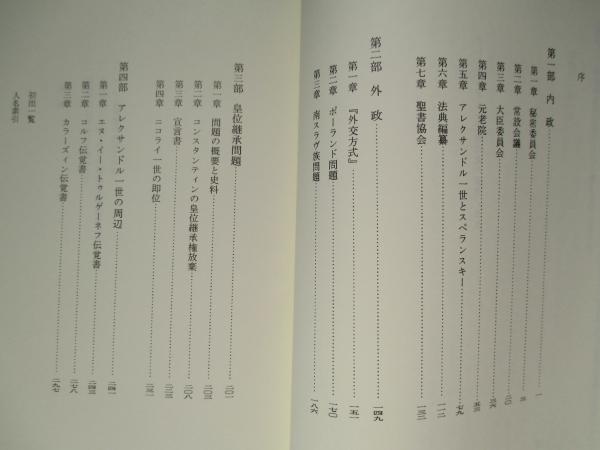 序
第一部 内政
第一章 秘密委員会 一
第二章 常設会議
第三章 大臣委員会
第四章 元老院
第五章 アレクサンドル一世とスペランスキー 七九
第六章 法典編纂 一一二
第七章 聖書協会 一三二
第二部 外政 一四九
第一章 『外交方式』 一五一
第二章 ポーランド問題 一七〇
第三章 南スラヴ族問題 一八六
第三部 皇位継承問題 二〇一
第一章 問題の概要と史料 二〇三
第二章 コンスタンティンの皇位継承権放棄 二〇八
第三章 宣言書
第四章 ニコライ一世の即位
第四部 アレクサンドル一世の周辺 二四一
第一章 エヌ・イー・トゥルゲーネフ伝覚書 二四三
第二章 コルフ伝覚書 二七八
第三章 カラーズィン伝覚書 二九七
初出一覧
人名索引